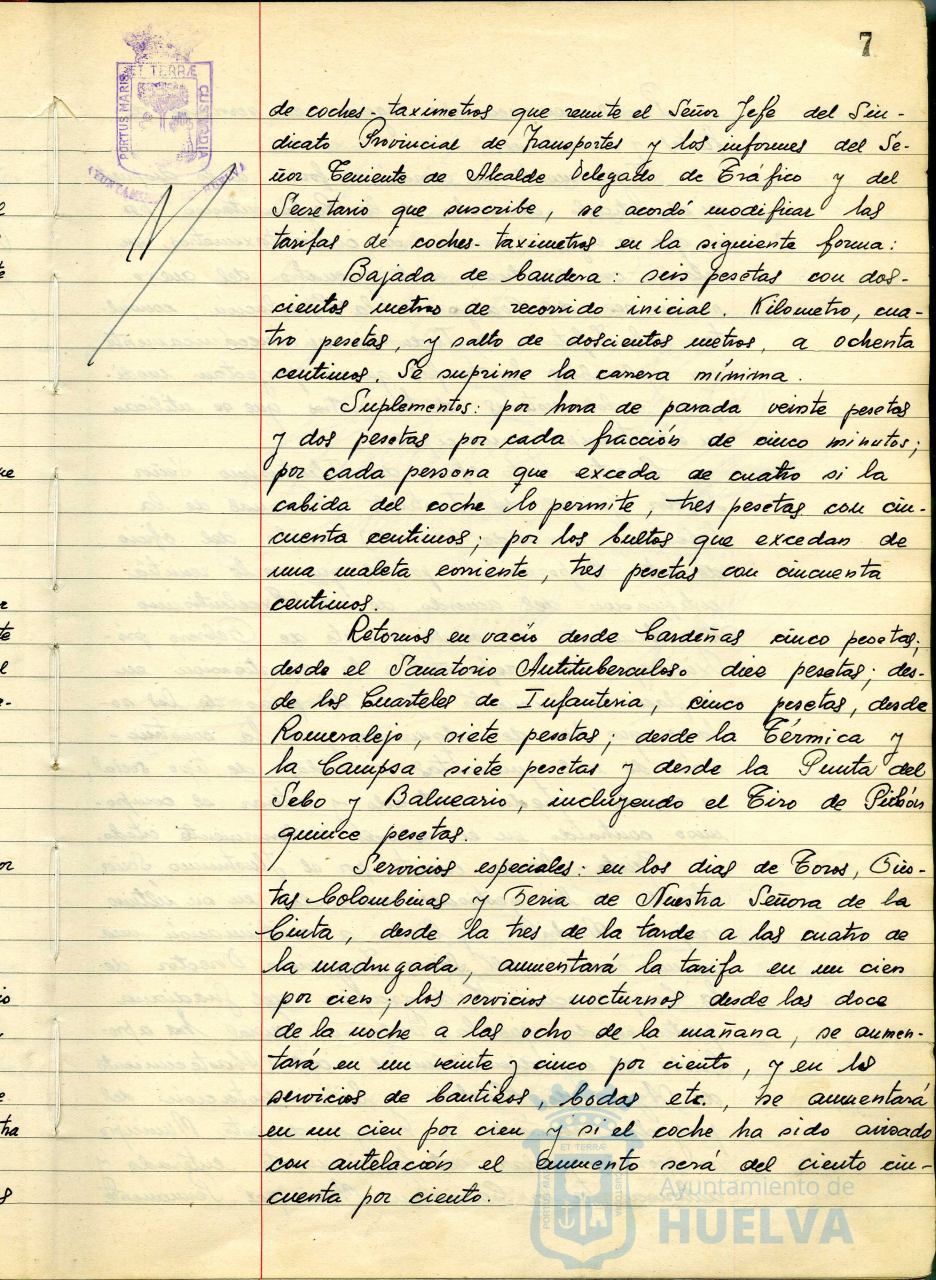 7
PORTUS MARIS ET TERRÆ CUSTODIA
de coches-taximetros que remite el Señor Jefe del Sin-
dicato Provincial de Transportes y los informes del Se-
ñor Teniente de Alcalde Delegado de Tráfico y del
Secretario que suscribe, se acordó modificar las
tarifas de coches-taximetros en la siguiente forma:
Bajada de bandera: seis pesetas con dos-
cientos metros de recorrido inicial. Kilometro, cua-
tro pesetas, y salto de doscientos metros, a ochenta
centimos. Se suprime la carrera mínima.
Suplementos: por hora de parada veinte pesetas
y dos pesetas por cada fracción de cinco minutos;
por cada persona que exceda de cuatro si la
cabida del coche lo permite, tres pesetas con cin-
cuenta centimos; por los bultos que excedan de
una maleta corriente, tres pesetas con cincuenta
centimos.
Retornos en vacío desde Cardeñas cinco pesetas;
desde el Sanatorio Antituberculoso diez pesetas; des-
de los Cuarteles de Infanteria, cinco pesetas, desde
Romeralejo, siete pesetas; desde la Térmica y
la Campsa siete pesetas y desde la Punta del
Sebo y Balneario, incluyendo el Tiro de Pichón
quince pesetas.
Servicios especiales: en los dias de Toros, Fies-
tas Colombinas y Feria de Nuestra Señora de la
Cinta, desde la tres de la tarde a las cuatro de
la madrugada, aumentará la tarifa en un cien
por cien; los servicios nocturnos desde las doce
de la noche a las ocho de la mañana, se aumen-
tará en un veinte y cinco por ciento, y en los
servicios de bautizos, bodas etc., se aumentará
en un cien por cien y si el coche ha sido avisado
con antelación el aumento será del ciento cin-
cuenta por ciento.
Ayuntamiento de
HUELVA